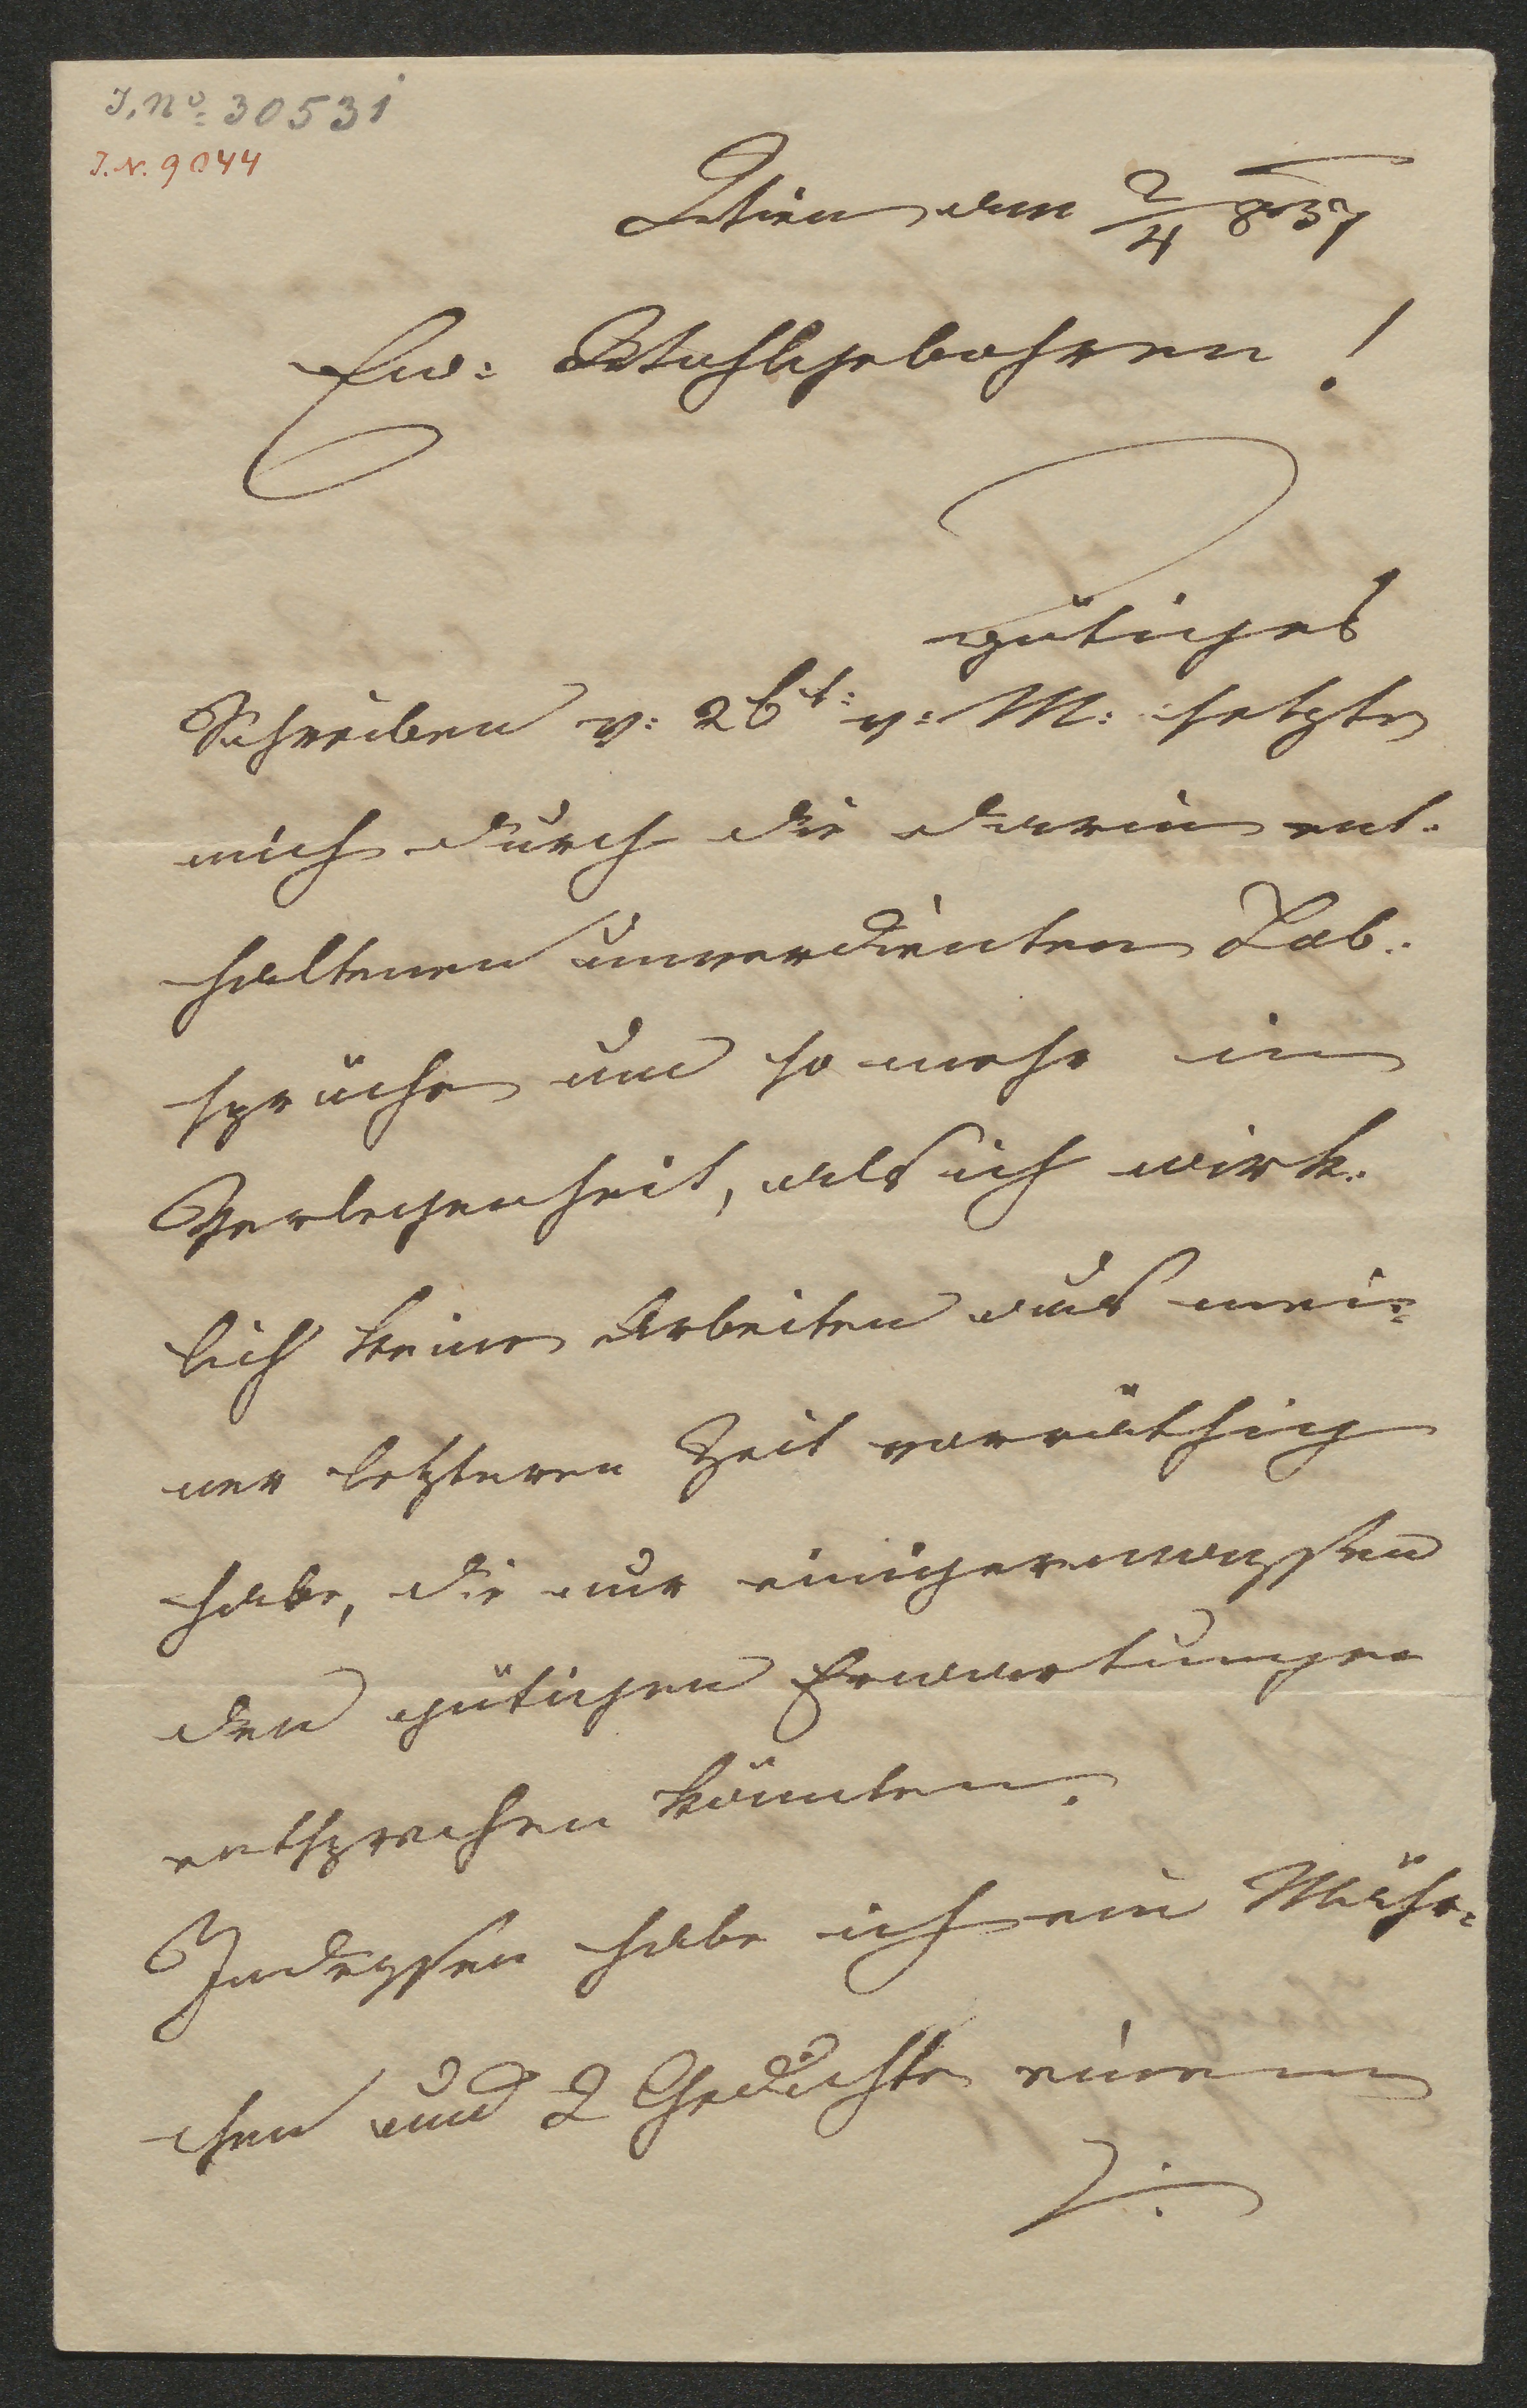 J. No: 30531
J. N. 9044
Wien am 2/4 837
Ew: Wohlgebohren!
gütiges
Schreiben v: 26t: v: M: setzte
mich durch die darin ent-
haltenen unverdienten Lob-
sprüche um so mehr in
Verlegenheit, als ich wirk-
lich keine Arbeiten aus mei-
ner letzteren Zeit vorräthig
habe, die nur einigermassen
den gütigen Erwartungen
entsprechen könnten.
Indessen habe ich ein Mähr-
chen und 2 Gedichte einem